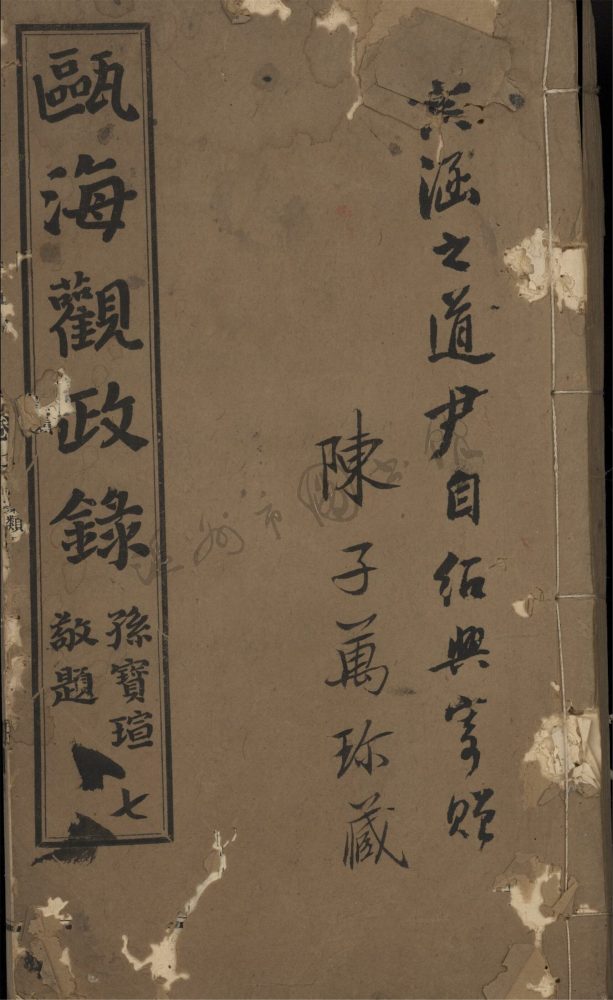 涵之道尹自紹興寄贈
陳子萬珍藏
甌海觀政錄
孫寶瑄
敬題
七
類